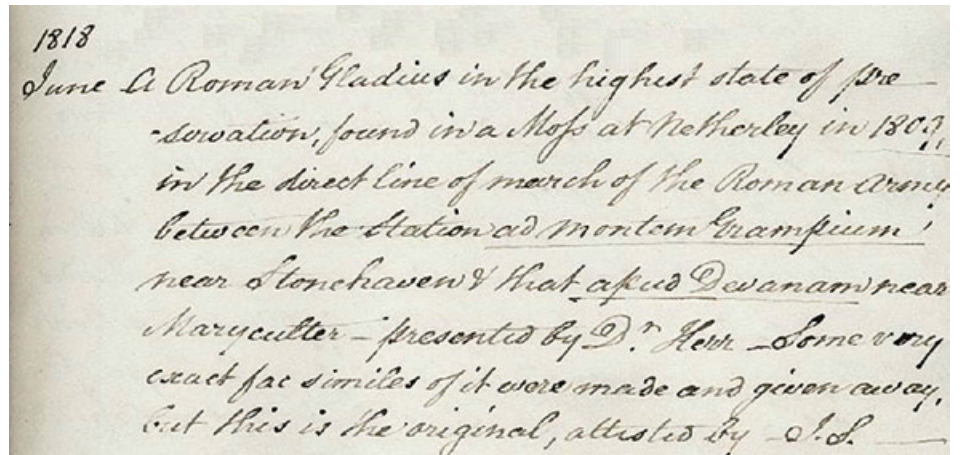 1818
June A Roman Gladius in the highest state of pre
-servation, found in a Moss at Netherley in 1803,
in the direct line of march of the Roman Army
between the Station ad montem Grampium
near Stonehaven & that apud Devanam near
Maryculter – presented by Dr. Kerr – Some very
exact fac similes of it were made and given away,
but this is the original, attested by – J. S.